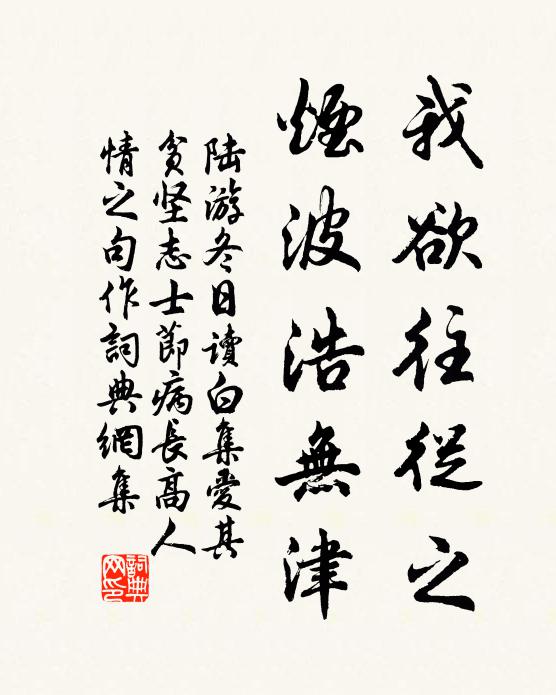 我欲往從之
煙波浩無津
陆游冬日讀白集愛其
貧坚志士節病長高人
情之句作詞典網集
詞典网印